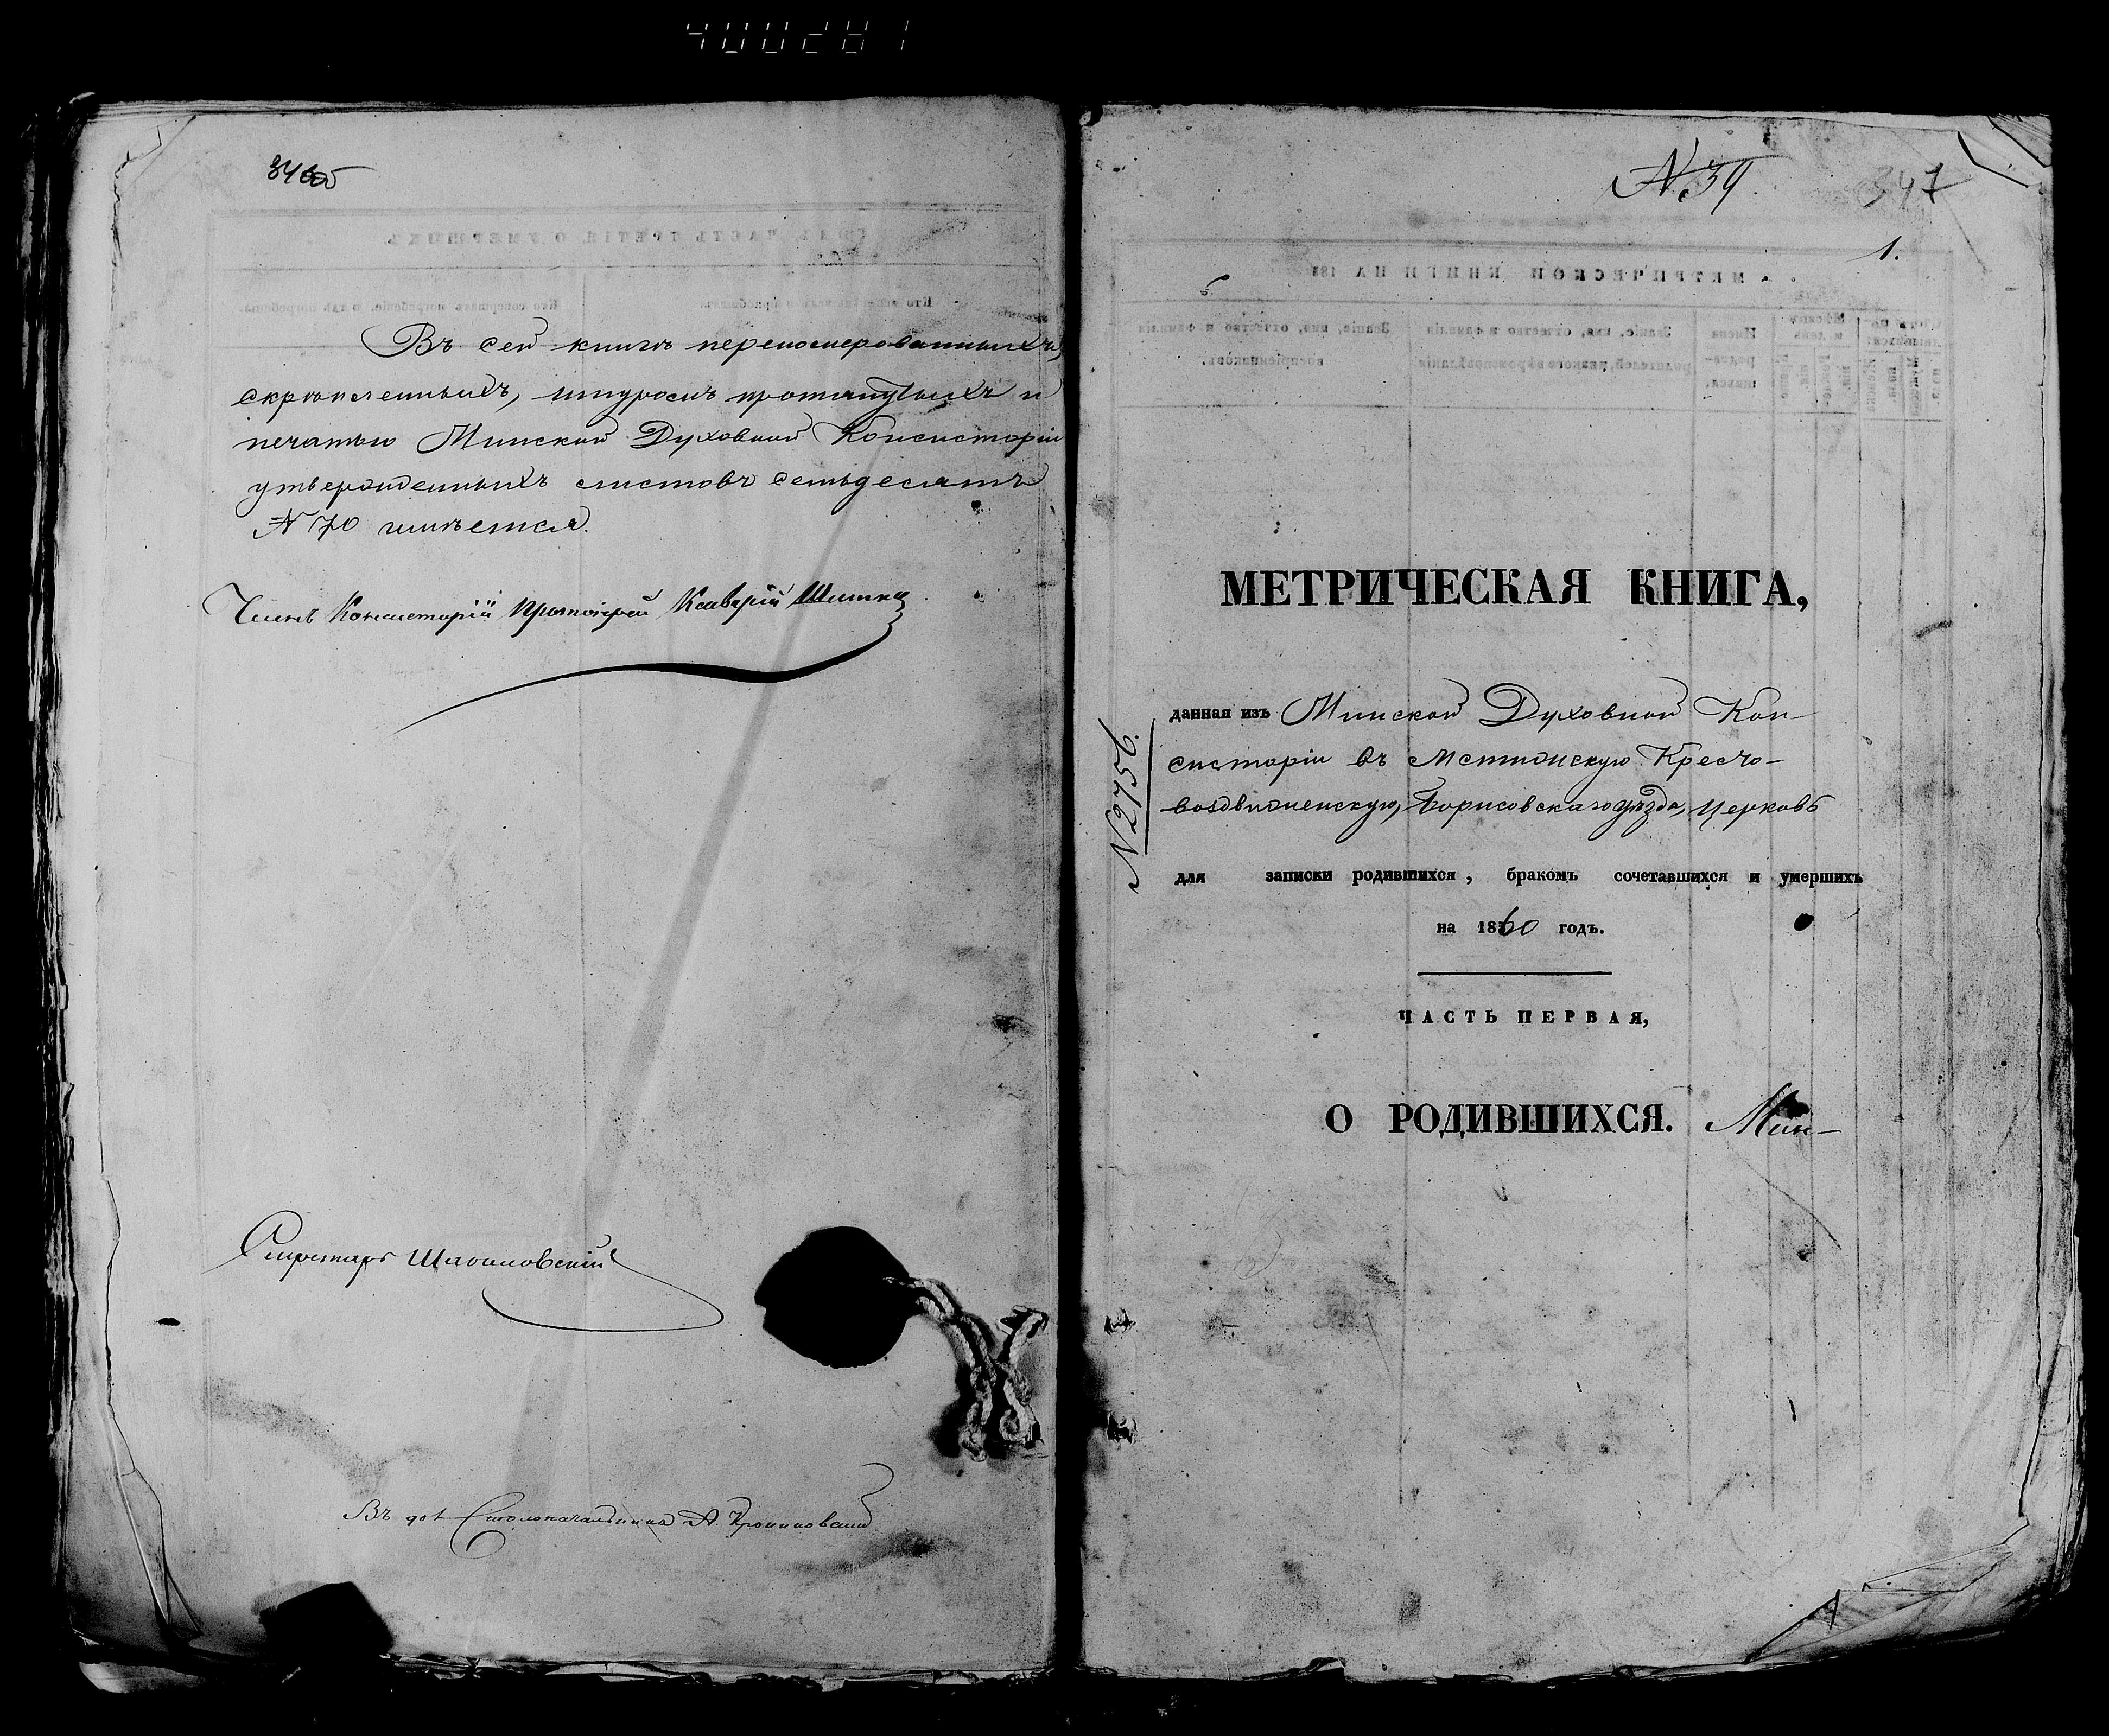 4000281
Въ сей книгѣ перенумерованныхъ,
скрѣпленныхъ, шнуромъ протянутыхъ и
печатью Минской Духовной Консисторіи
утвержденныхъ листовъ семьдесятъ
№ 70 имѣется.
Членъ Консисторіи Протоіерей
Секретарь
Въ дол Столоначальника А.
№ 39.
347
1.
МЕТРИЧЕСКАЯ КНИГА,
данная изъ Минской Духовной Кон-
систоріи въ Мстижскую Кресто-
воздвиженскую, Борисовскаго уѣзда, церковь
№ 2756.
для записки родившихся, бракомъ сочетавшихся и умершихъ
на 1860 годъ.
ЧАСТЬ ПЕРВАЯ,
О РОДИВШИХСЯ. Мин-